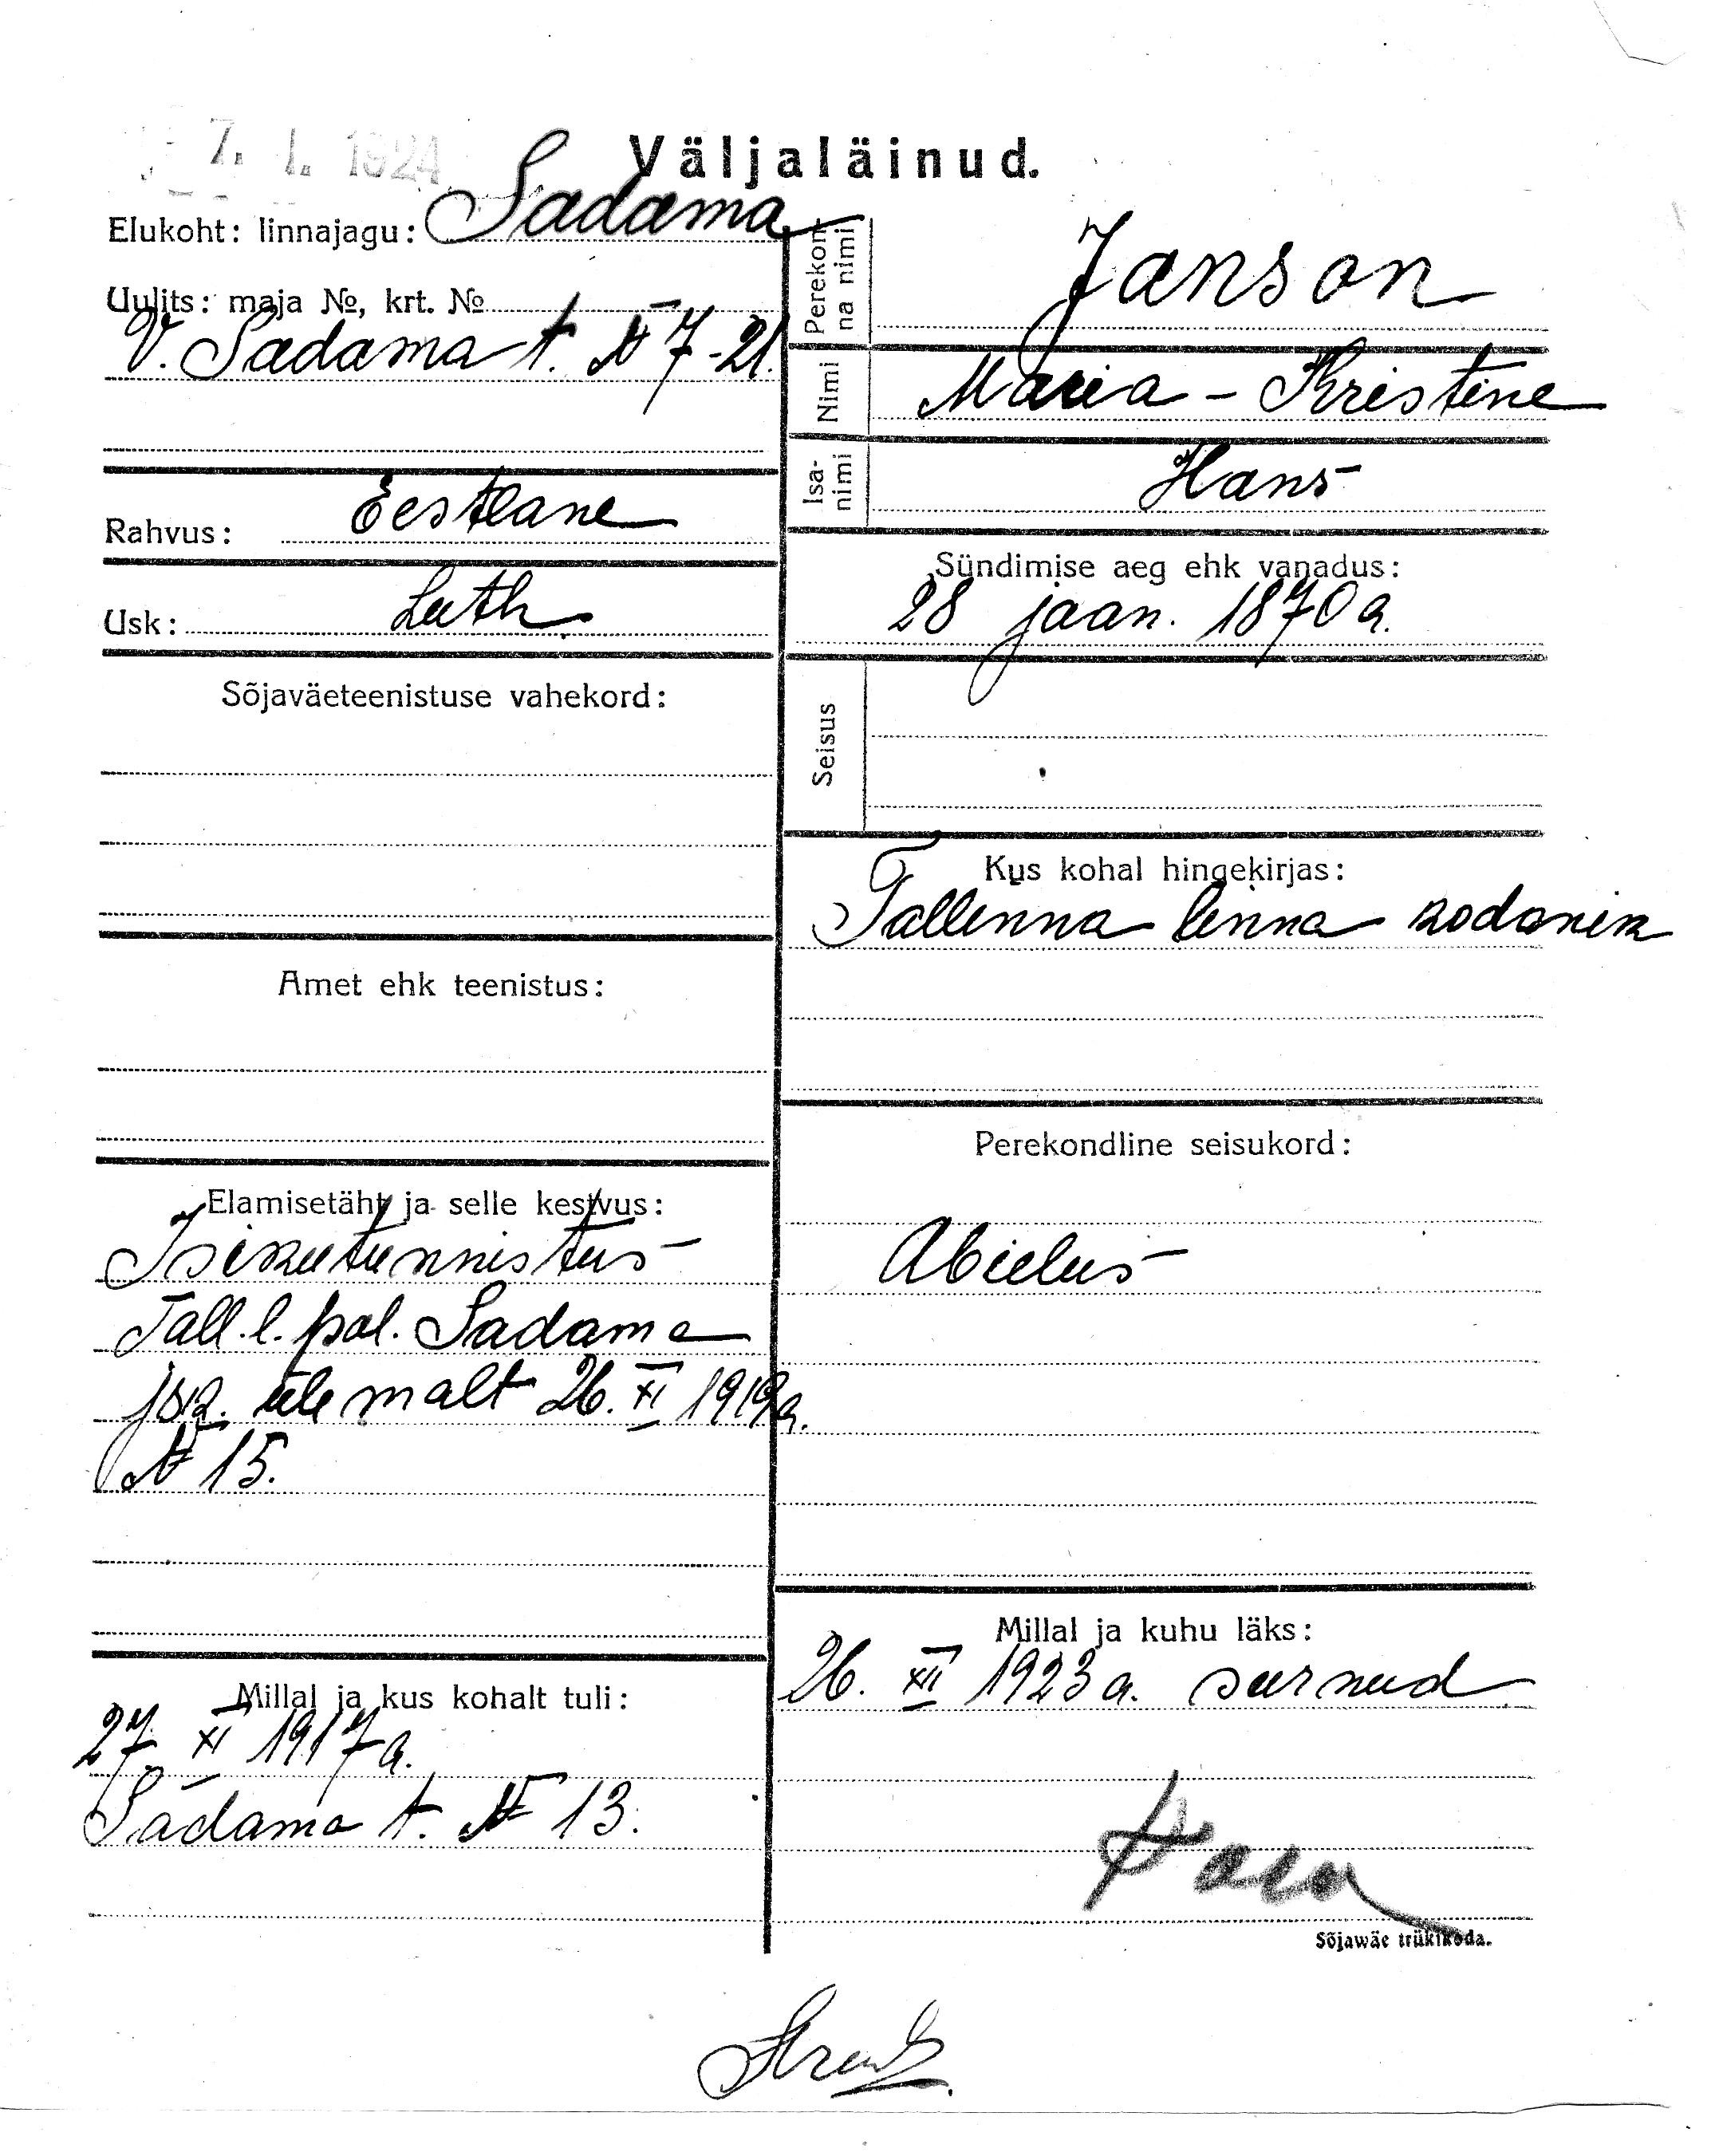 7. I. 1924
Väljaläinud.
Elukoht: linnajagu: Sadama
Uulits: maja №, krt. №
V. Sadama t. № 7-21.
Rahvus: Eestlane
Usk: Luth.
Sõjaväeteenistuse vahekord:
Amet ehk teenistus:
Elamisetäht ja selle kestvus:
Isikutunnistus
Tall. l. pol. Sadama
jsk. ülemalt 26. XI 1919 a.
№ 15.
Millal ja kus kohalt tuli:
27. XI 1917 a.
Sadama t. № 13.
Perekon
na nimi
Janson
Nimi
Maria - Kristine
Isa-
nimi
Hans
Sündimise aeg ehk vanadus:
28 jaan. 1870 a.
Seisus
Kus kohal hingekirjas:
Tallinna linna kodanik
Perekondline seisukord:
Abielus
Millal ja kuhu läks:
26. XII 1923 a. surnud
Sõjawäe trükikoda.